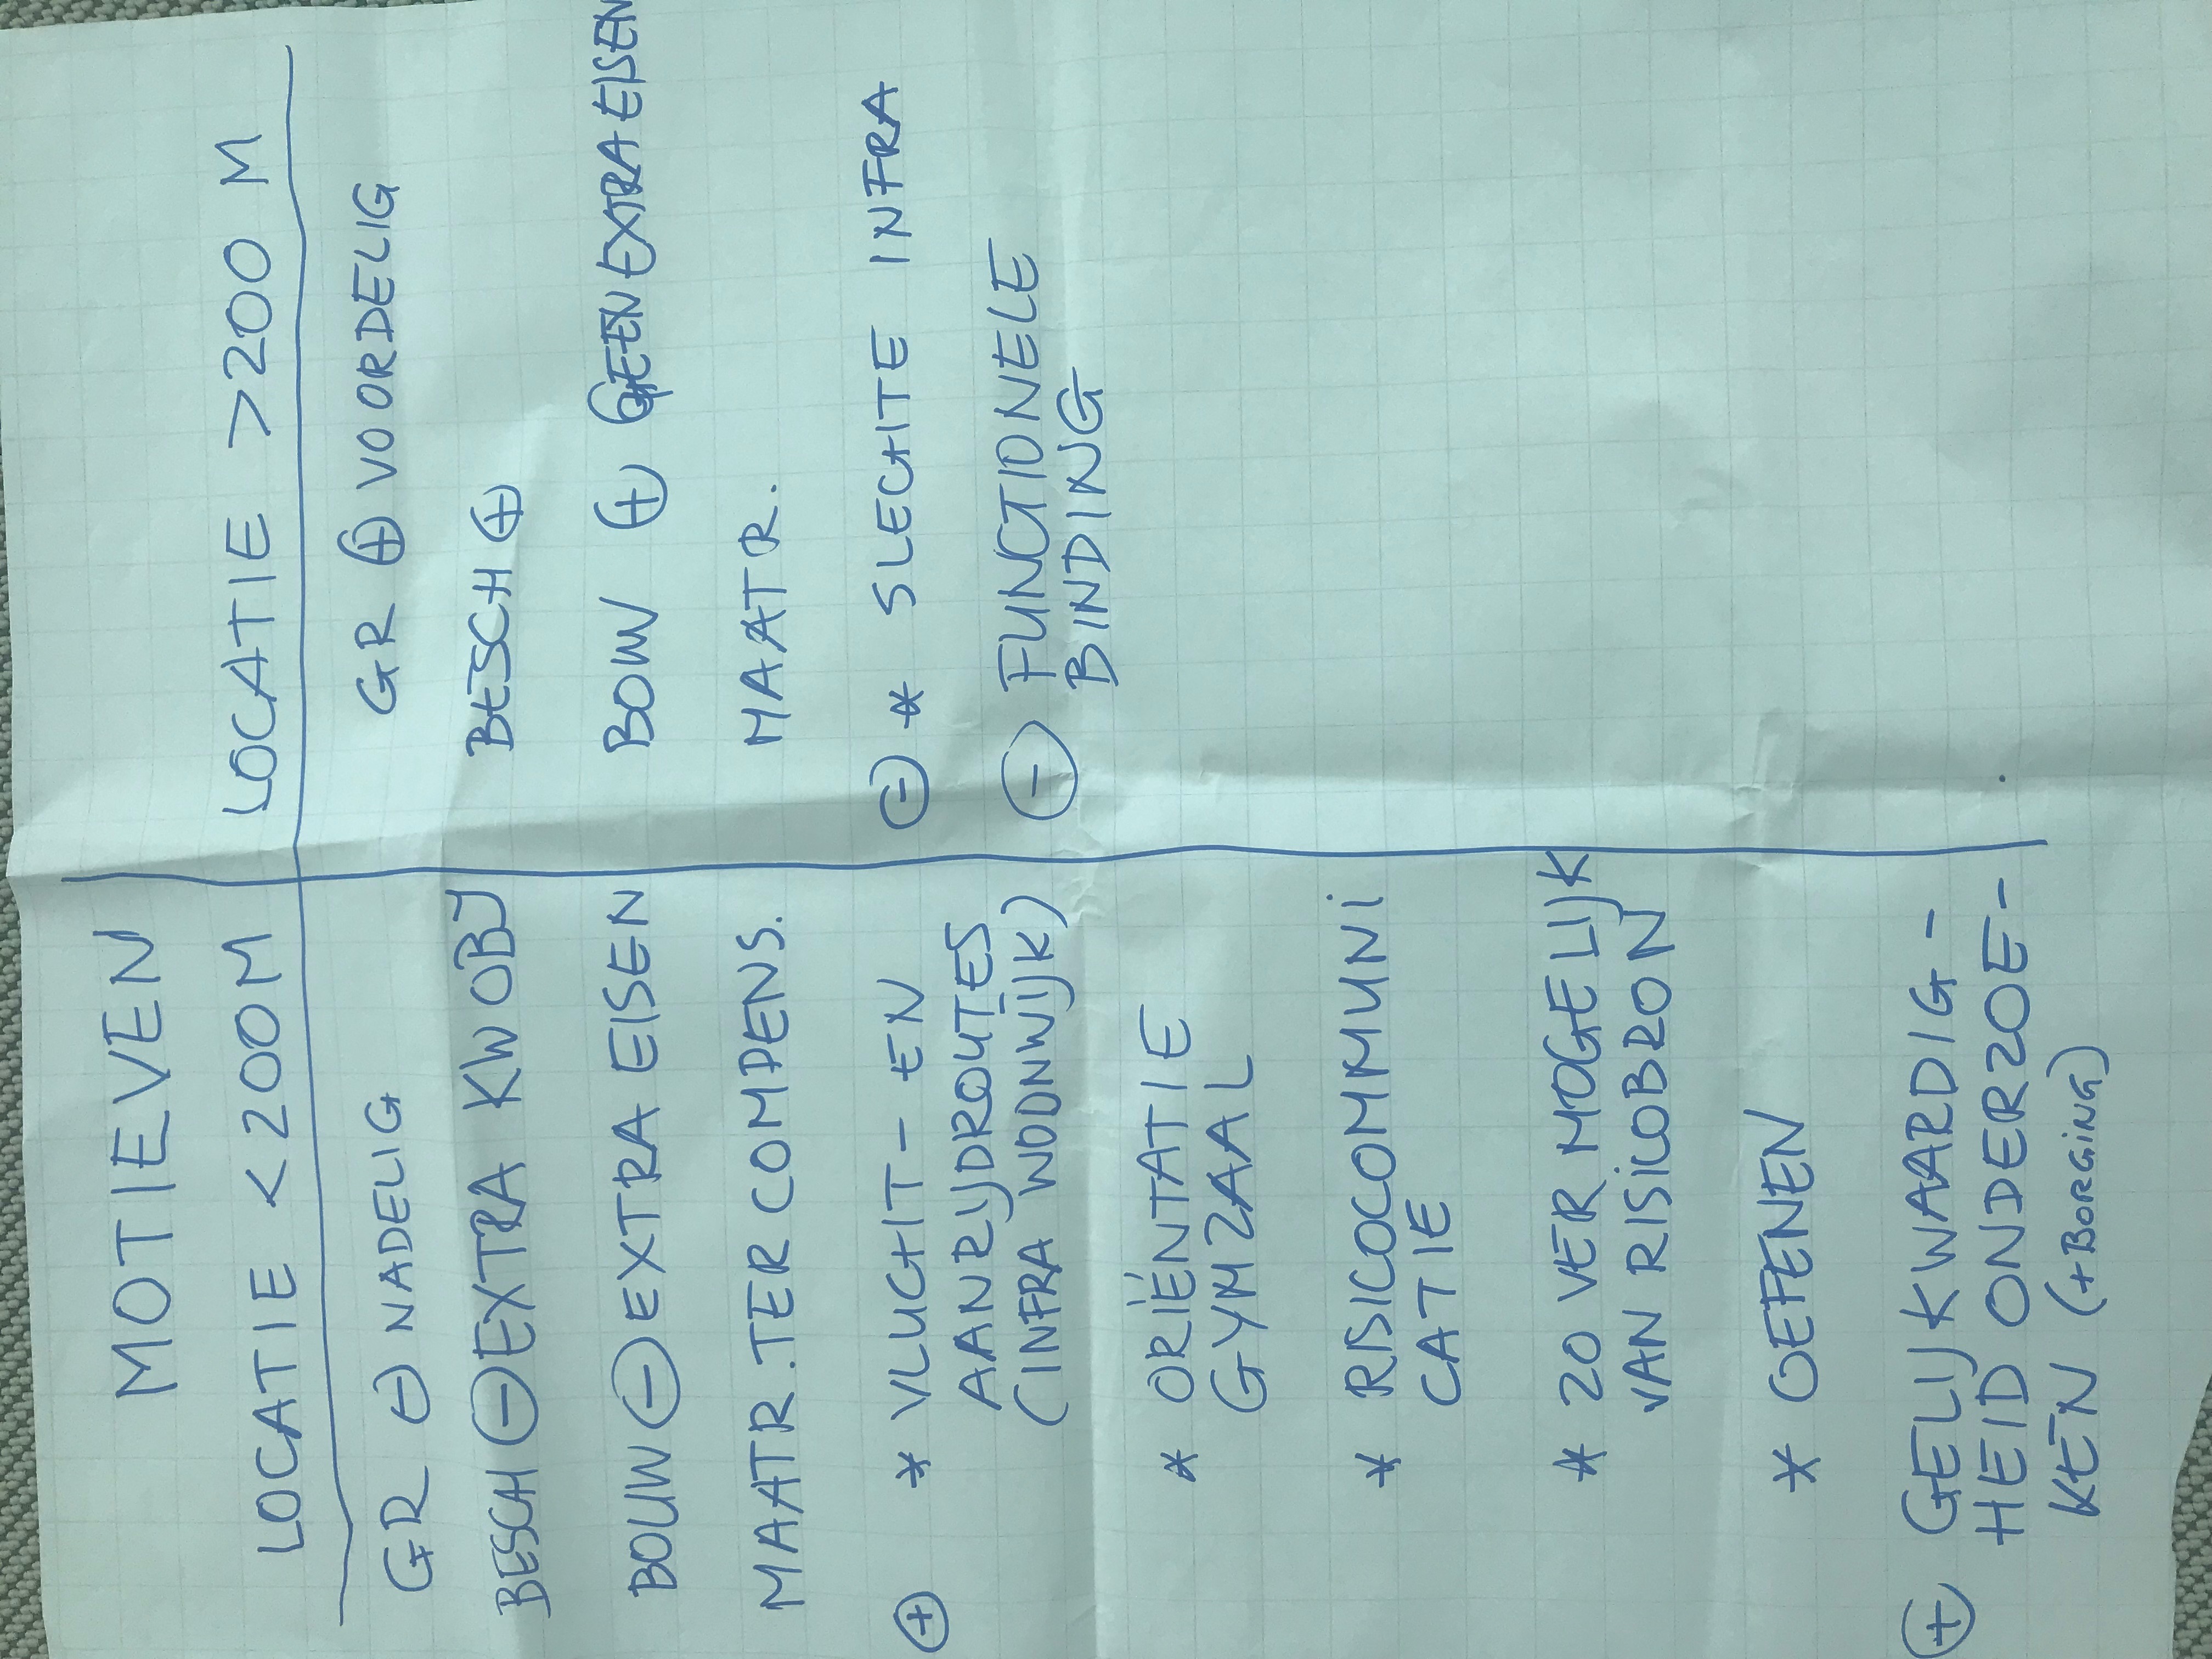 MOTIEVEN
LOCATIE < 200M
GR ⊖ NADELIG
BESCH ⊖ EXTRA KW OBJ
BOUW ⊖ EXTRA EISEN
MAATR. TER COMPENS.
⊕ * VLUCHT- EN
AANRIJDROUTES
(INFRA WOONWIJK)
* ORIËNTATIE
GYMZAAL
* RISICOCOMMUNI
CATIE
* ZO VER MOGELIJK
VAN RISICOBRON
* OEFENEN
⊕ GELIJKWAARDIG-
HEID ONDERZOE-
KEN (+BORGING)
LOCATIE >200 M
GR ⊕ VOORDELIG
BESCH ⊕
BOUW ⊕ GEEN EXTRA EISEN
MAATR.
⊖ * SLECHTE INFRA
⊖ FUNCTIONELE
BINDING